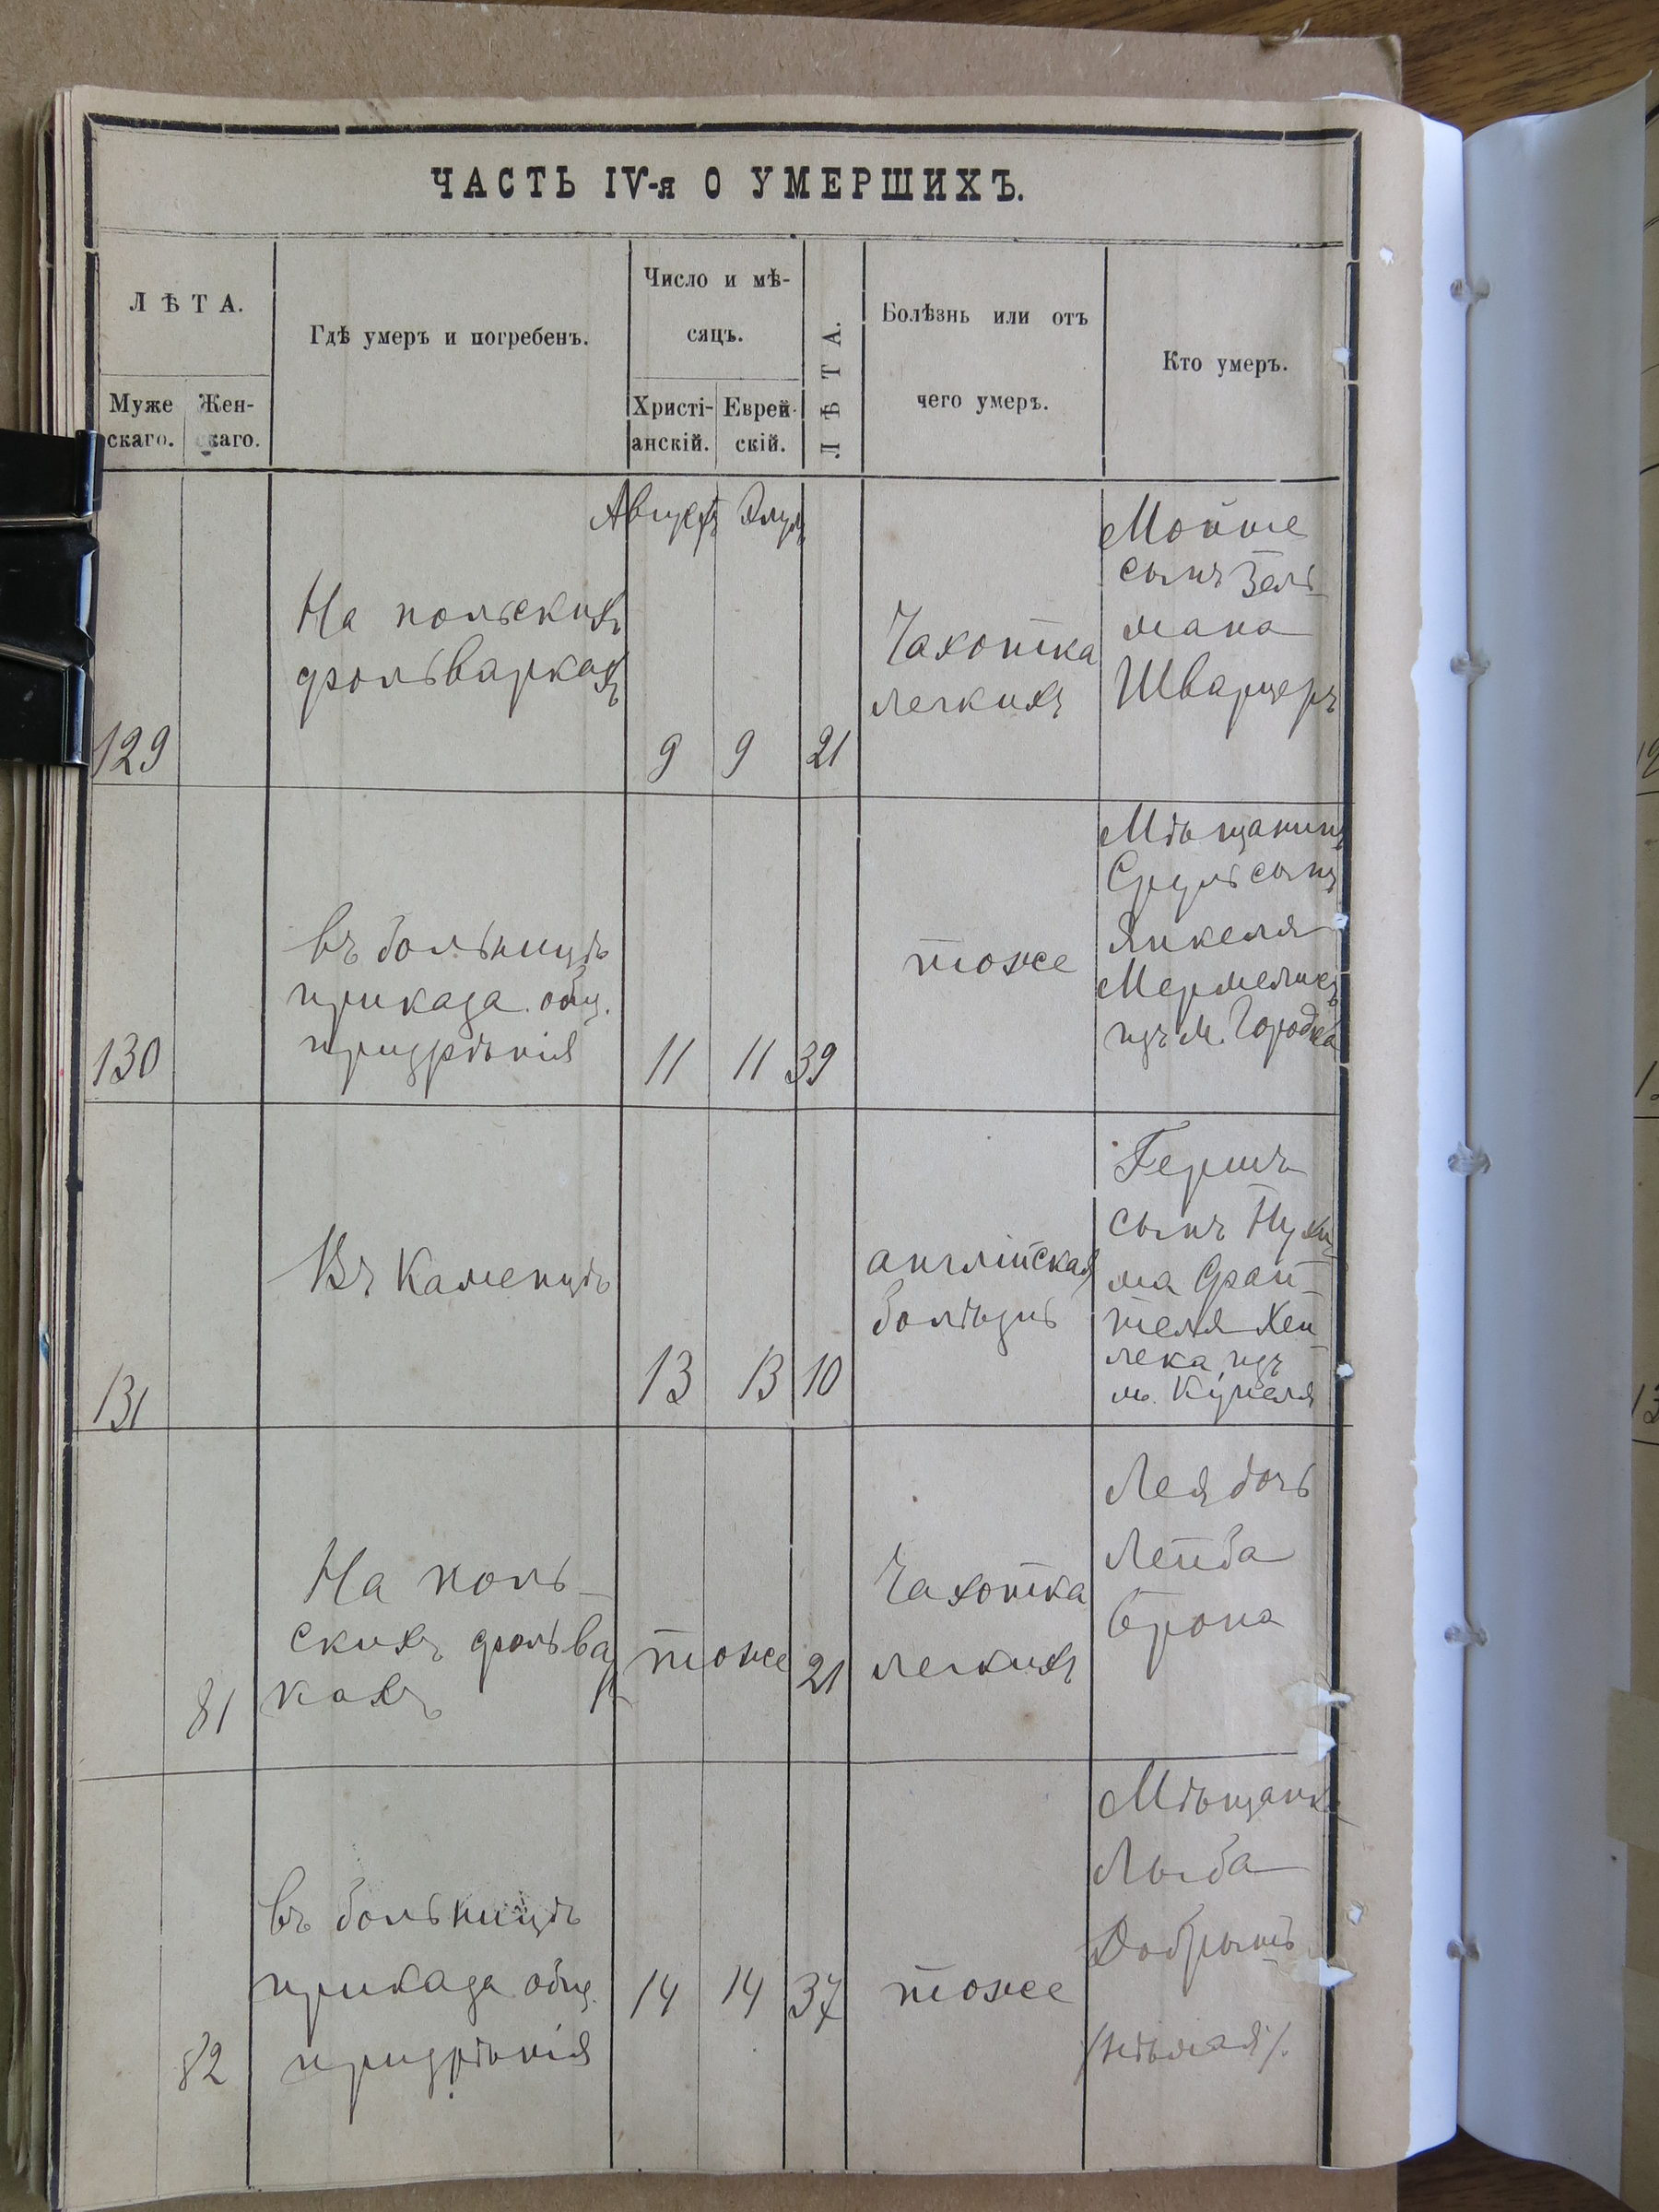 ЧАСТЬ IV-я О УМЕРШИХЪ.
ЛѢТА.
Муже
скаго.
Жен-
скаго.
Гдѣ умеръ и погребенъ.
Число и мѣ-
сяцъ.
Христі-
анскій.
Еврей-
скій.
ЛѢТА.
Болѣзнь или отъ
чего умеръ.
Кто умеръ.
Августъ Элулъ
129
На польскихъ
фольваркахъ
9 9 21
Чахотка
легкихъ
Мойше
сынъ Зель
мана
Шварцеръ
130
въ больницѣ
приказа общ.
призрѣнія
11 11 39
тоже
Мѣщанинъ
Сруль сынъ
Янкеля
изъ м. Городка
131
Въ Каменцѣ
13 13 10
англійская
болѣзнь
Гершъ
сынъ Нухи
ма
лека изъ
м. Купеля
81
На поль-
скихъ фольвар
кахъ
тоже 21
Чахотка
легкихъ
Лея дочь
Лейба
Брона
82
въ больницѣ
приказа общ.
призрѣнія
14 14 37
тоже
Мѣщанка
Люба
/нѣмая/.